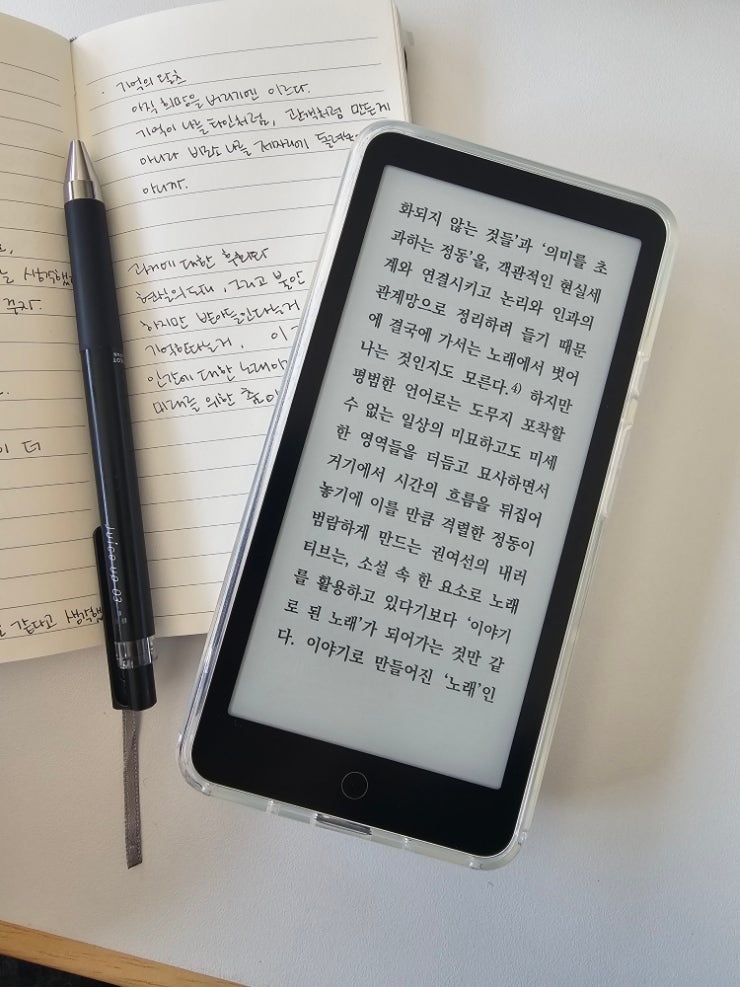 . 기억의 닻츠
아직 희망을 버리기엔 이르다.
기억이 나를 타인처럼, 관객처럼 만든게
아니라 바로 나를 제자리에
아니까.
과거에 대한
그리고 불안
하지만 받아들인다는거
기억한다는거.
인간에 대한
미래를 위한
생각했
이 더
같다고 생각했
Juice up 03
화되지 않는 것들’과 ‘의미를 초
과하는 정동’을, 객관적인 현실세
계와 연결시키고 논리와 인과의
관계망으로 정리하려 들기 때문
에 결국에 가서는 노래에서 벗어
나는 것인지도 모른다.4) 하지만
평범한 언어로는 도무지 포착할
수 없는 일상의 미묘하고도 미세
한 영역들을 더듬고 묘사하면서
거기에서 시간의 흐름을 뒤집어
놓기에 이를 만큼 격렬한 정동이
범람하게 만드는 권여선의 내러
티브는, 소설 속 한 요소로 노래
를 활용하고 있다기보다 ‘이야기
로 된 노래’가 되어가는 것만 같
다. 이야기로 만들어진 ‘노래’인